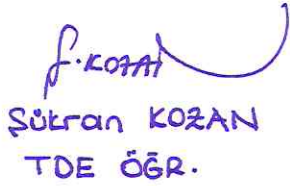 Ş. KOZAN
Şükran KOZAN
TDE ÖĞR.